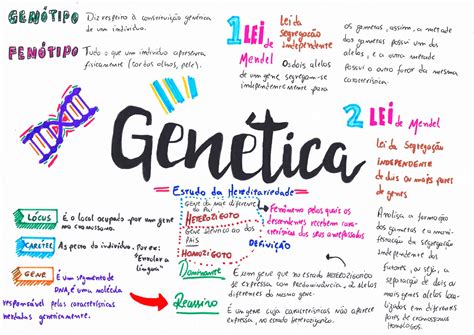 GENÓTIPO
Diz respeito à constituição genética
de um indivíduo.
FENÓTIPO
Tudo o que um indivíduo apresenta
fisicamente (cor dos olhos, pele).
1 LEI
de
Mendel
Lei da
segregação
independente
Os dois alelos
de um gene segregam-se
independentemente para
os gametas, assim, a metade
dos gametas possui um dos
alelos, e a outra metade
possui o outro fator da mesma
característica.
2 LEI de Mendel
Lei da Segregação
INDEPENDENTE
de dois ou mais pares
de genes
Analisa a formação
dos gametas e a
manutenção da
segregação
independente dos
fatores, ou seja, a
separação de dois ou
mais genes alelos
localizados em
diferentes pares
de cromossomos
homólogos.
Genética
Estudo da Hereditariedade
LÓCUS
É o local ocupado por um gene
no cromossomo.
CARÁTER
As pecto do indivíduo. Por ex:
"Enrolar a
língua"
GENE
É um segmento de
DNA, é uma molécula
responsável pelas características
herdadas geneticamente.
Gene de
diferente
HETEROZIGOTO
Gene idêntico ao dos
PAIS
HOMOZIGOTO
Fenômeno pelos quais os
descendentes recebem carac-
terísticas dos seus antepassados
DEFINIÇÃO
Dominante
É um gene que no estado HETEROZIGOTO
se expressa com predominância, de alelos
diferentes do mesmo gene.
Recessivo
É um gene cuja características não aparece
expressa, no estado heterozigoto.